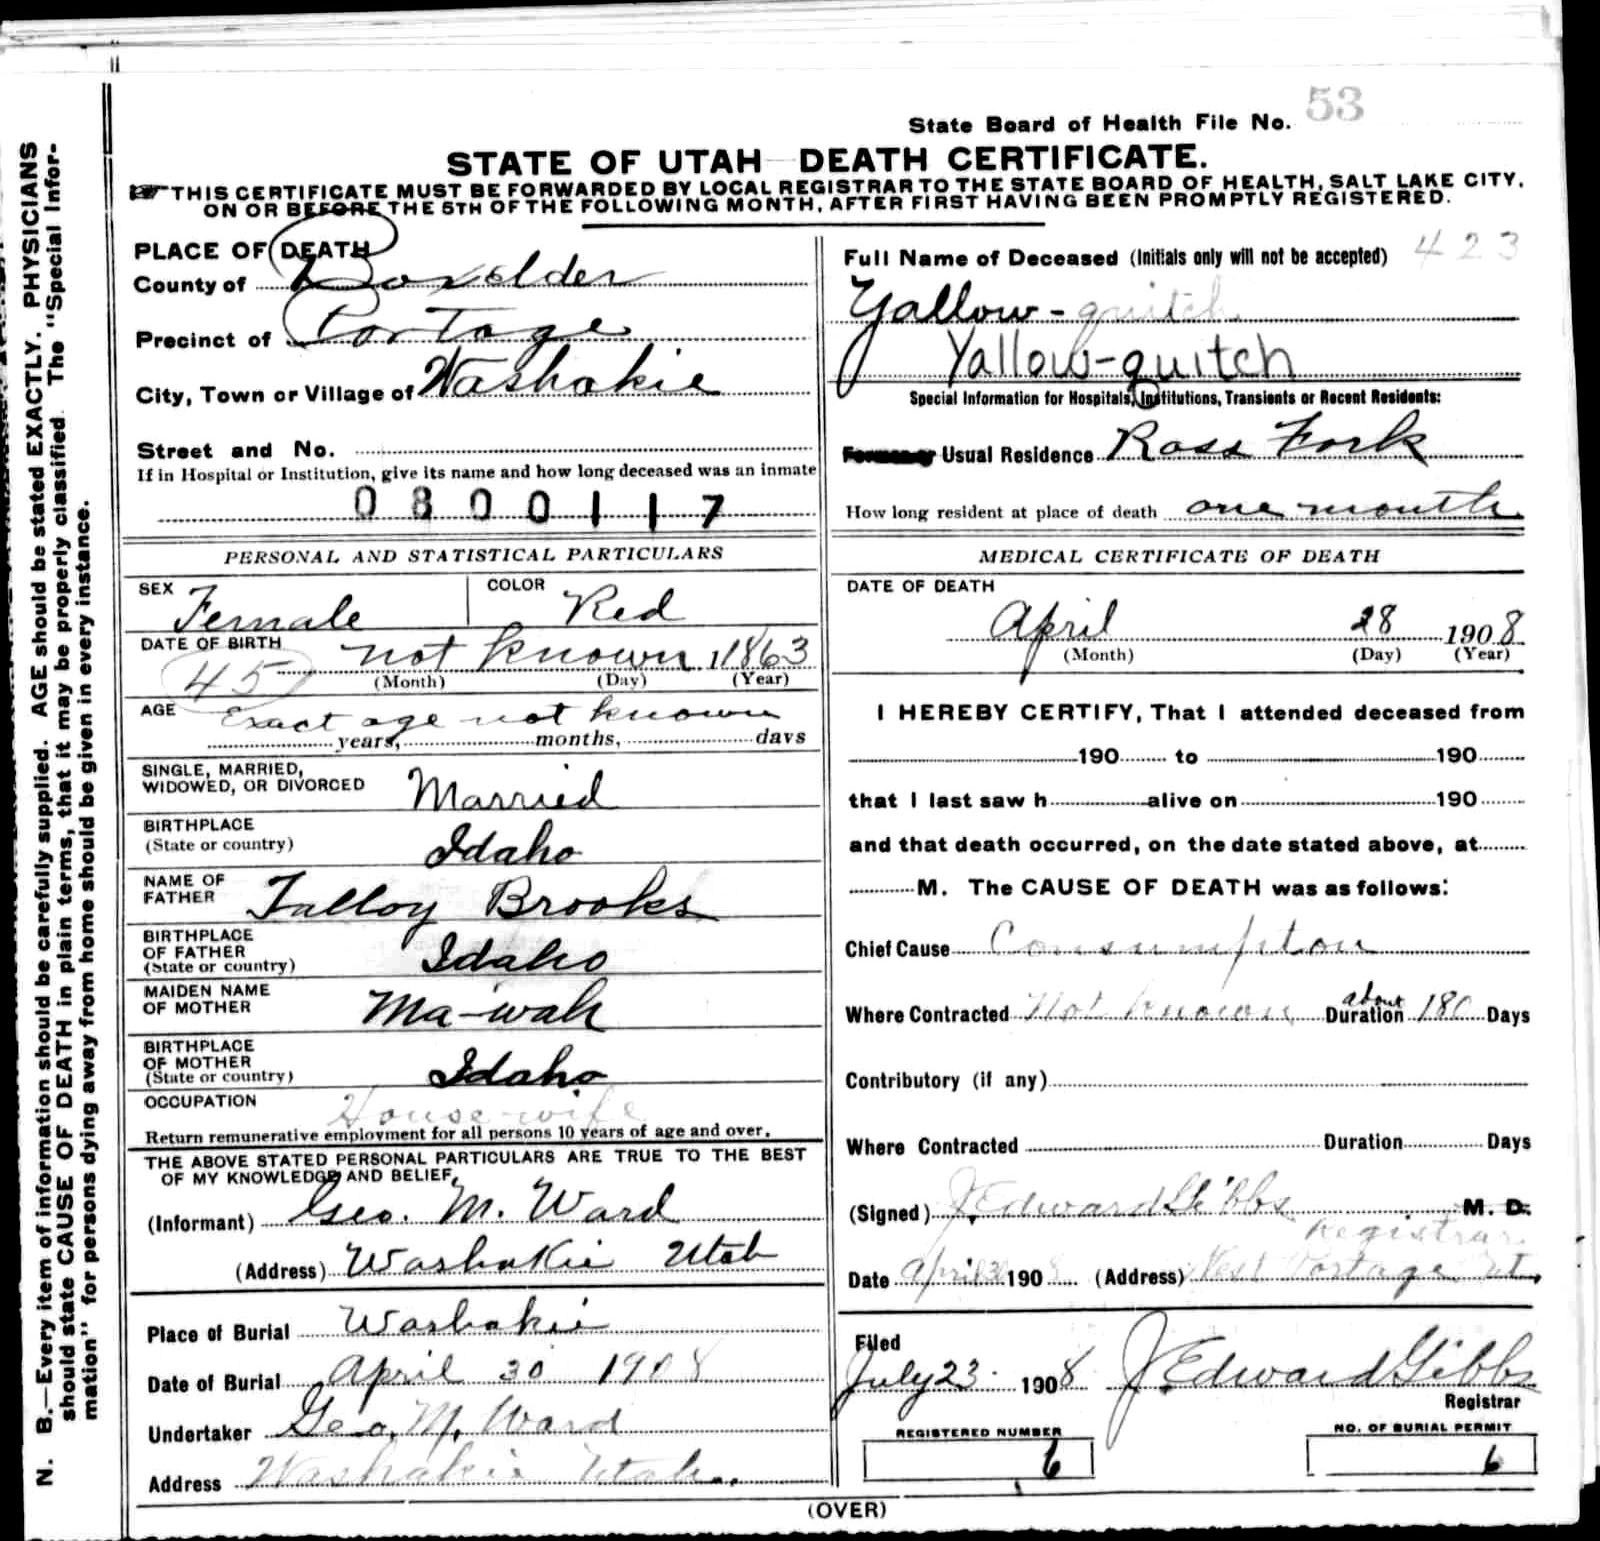 N. B.—Every item of information should be carefully supplied. AGE should be stated EXACTLY. PHYSICIANS
should state CAUSE OF DEATH in plain terms, that it may be properly classified. The "Special Infor-
mation" for persons dying away from home should be given in every instance.
State Board of Health File No. 53
STATE OF UTAH DEATH CERTIFICATE.
THIS CERTIFICATE MUST BE FORWARDED BY LOCAL REGISTRAR TO THE STATE BOARD OF HEALTH, SALT LAKE CITY,
ON OR BEFORE THE 5TH OF THE FOLLOWING MONTH, AFTER FIRST HAVING BEEN PROMPTLY REGISTERED.
PLACE OF DEATH
County of Boxelder
Precinct of Portage
City, Town or Village of Washakie
Street and No.
If in Hospital or Institution, give its name and how long deceased was an inmate
0800117
PERSONAL AND STATISTICAL PARTICULARS
SEX Female COLOR Red
DATE OF BIRTH not known 1863
45 (Month) (Day) (Year)
AGE Exact age not known
years, months, days
SINGLE, MARRIED,
WIDOWED, OR DIVORCED Married
BIRTHPLACE
(State or country) Idaho
NAME OF
FATHER Talloy Brooks
BIRTHPLACE
OF FATHER
(State or country) Idaho
MAIDEN NAME
OF MOTHER Ma-wah
BIRTHPLACE
OF MOTHER
(State or country) Idaho
OCCUPATION House-wife
Return remunerative employment for all persons 10 years of age and over.
THE ABOVE STATED PERSONAL PARTICULARS ARE TRUE TO THE BEST
OF MY KNOWLEDGE AND BELIEF.
(Informant) Geo. M. Ward
(Address) Washakie Utah
Place of Burial Washakie
Date of Burial April 30 1908
Undertaker Geo. M. Ward
Address Washakie Utah.
Full Name of Deceased (Initials only will not be accepted) 423
Yallow-quitch
Yallow-quitch
Special Information for Hospitals, Institutions, Transients or Recent Residents:
Usual Residence Ross Fork
How long resident at place of death one month
MEDICAL CERTIFICATE OF DEATH
DATE OF DEATH
April 28 1908
(Month) (Day) (Year)
I HEREBY CERTIFY, That I attended deceased from
190 to 190
that I last saw h alive on 190
and that death occurred, on the date stated above, at
M. The CAUSE OF DEATH was as follows:
Chief Cause Consumption
Where Contracted Not known about Duration 180 Days
Contributory (if any)
Where Contracted Duration Days
(Signed) J. Edward Gibbs M. D.
Registrar
Date April 30 1908 (Address) West Portage Ut.
Filed
July 23 1908 J. Edward Gibbs
Registrar
REGISTERED NUMBER
6
NO. OF BURIAL PERMIT
6
(OVER)